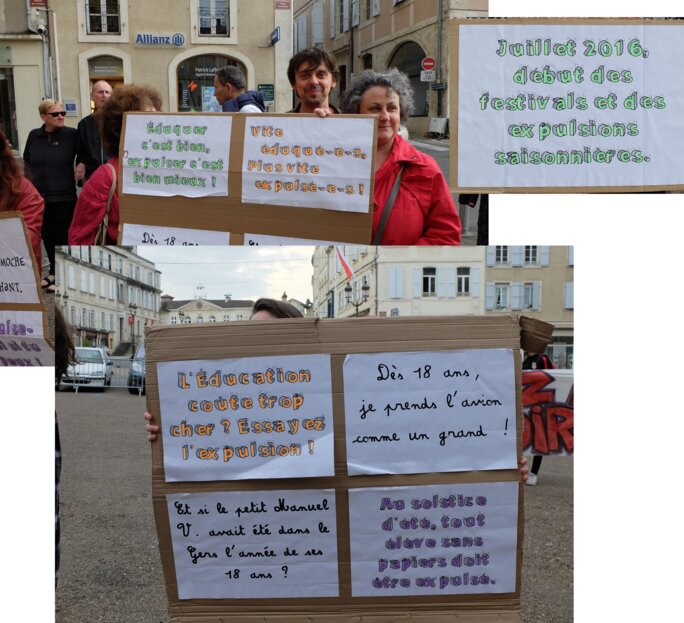 Allianz
Éduquer
c'est bien,
expulser c'est
bien mieux !
Vite
éduqué-e-s,
Plus vite
expulsé-e-s !
Dès 18 ans
Juillet 2016,
début des
festivals et des
expulsions
saisonnières.
MOCHE
HANT.
L'Éducation
coûte trop
cher ? Essayez
l'expulsion !
Dès 18 ans,
je prends l'avion
comme un grand !
Et si le petit Manuel
V. avait été dans le
Gers l'année de ses
18 ans ?
Au solstice
d'été, tout
élève sans
papiers doit
être expulsé.